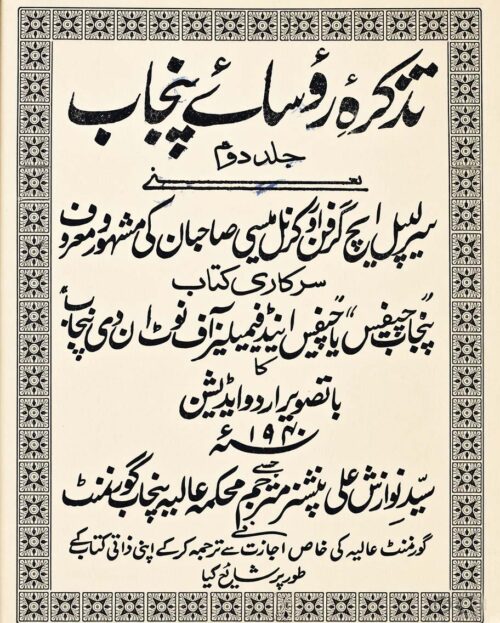 تذکرۂ رؤسائے پنجاب
جلد دوم
یعنے
سر لیپل ایچ گرفن و کرنل میسی صاحبان کی مشہور و معروف
سرکاری کتاب
"پنجاب چیفس" یا "چیفس اینڈ فیمیلیز آف نوٹ ان دی پنجاب"
کا
با تصویر اردو ایڈیشن
۱۹۴۰ء
جسے
سیّد نوازش علی پنشنر مترجم محکمہ عالیہ پنجاب گورنمنٹ
نے
گورنمنٹ عالیہ کی خاص اجازت سے ترجمہ کر کے اپنی ذاتی کتاب کے
طور پر شایع کیا